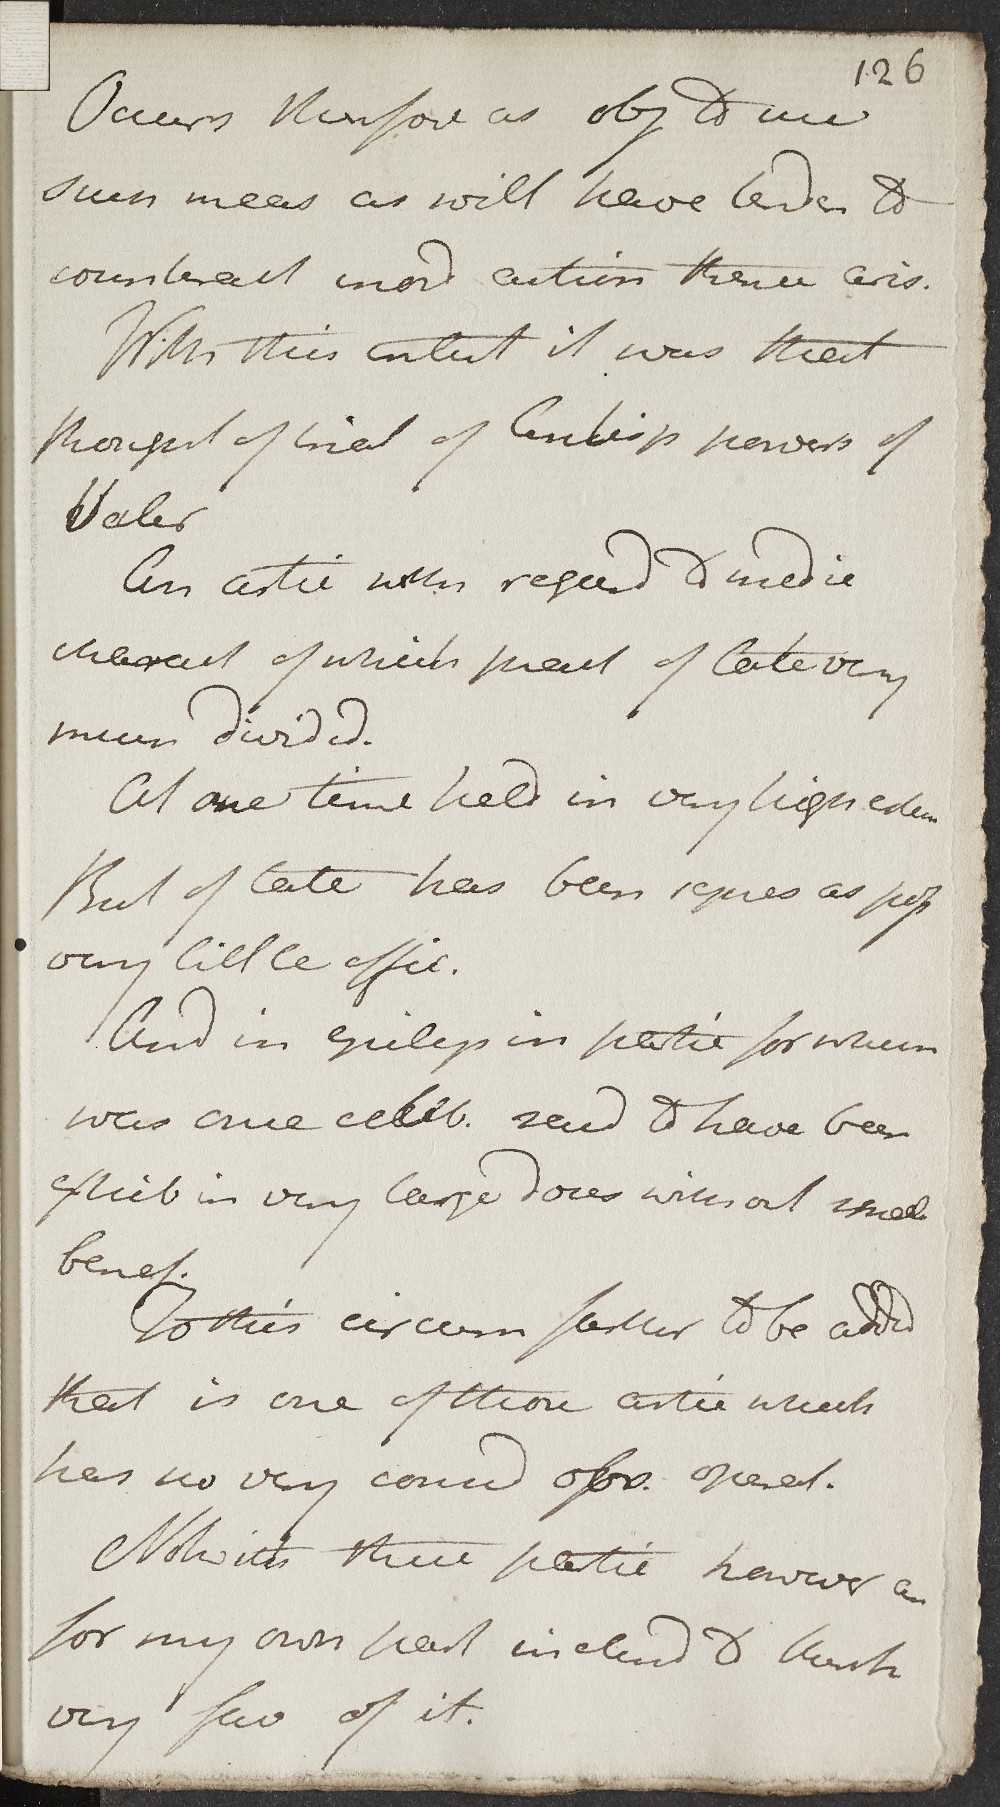 126
Occurs therefore as obj to me
such meas as will have tenden to
counteract mord action thence aris.
With this intent it was that
thought of trial of Antisp powers of
Valer
An artic with regard to medic
charact of which pract of late very
much divided.
At one time held in very high estem
But of late has been repres as poss
very little effic.
And in epileps in partic for whom
was once celeb. said to have been
exhib in very large doses without small
benef.
To this circum farther to be added
that is one of those artic which
has no very conid obv. operat.
Notwith these partic however am
for my own part inclind to think
very fav of it.